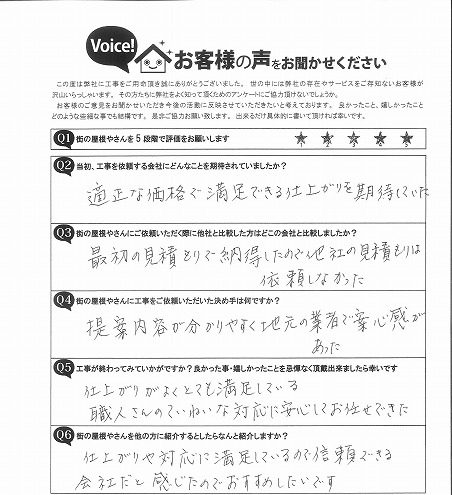 Voice!
お客様の声をお聞かせください
この度は弊社に工事をご用命頂き誠にありがとうございました。 世の中には弊社の存在やサービスをご存知ないお客様が
沢山いらっしゃいます。 その方たちに弊社をよく知って頂くためのアンケートにご協力頂けないでしょうか。
お客様のご意見をお聞かせいただき今後の活動に反映させていただきたいと考えております。 良かったこと、嬉しかったこと
どのような些細な事でも結構です。 是非ご協力お願い致します。 出来るだけ具体的に書いて頂ければ幸いです。
Q1 街の屋根やさんを5段階で評価をお願いします ★ ★ ★ ★ ★
Q2 当初、工事を依頼する会社にどんなことを期待されていましたか?
適正な価格で満足できる仕上がりを期待していた
Q3 街の屋根やさんにご依頼いただく際に他社と比較した方はどこの会社と比較しましたか?
最初の見積もりで納得したので他社の見積もりは
依頼しなかった
Q4 街の屋根やさんに工事をご依頼いただいた決め手は何ですか?
提案内容が分かりやすく地元の業者で安心感が
あった
Q5 工事が終わってみていかがですか?良かった事・嬉しかったことを忌憚なく頂戴出来ましたら幸いです
仕上がりがよくとても満足している
職人さんのていねいな対応に安心してお任せできた
Q6 街の屋根やさんを他の方に紹介するとしたらなんと紹介しますか?
仕上がりや対応に満足しているので信頼できる
会社だと感じたのでおすすめしたいです